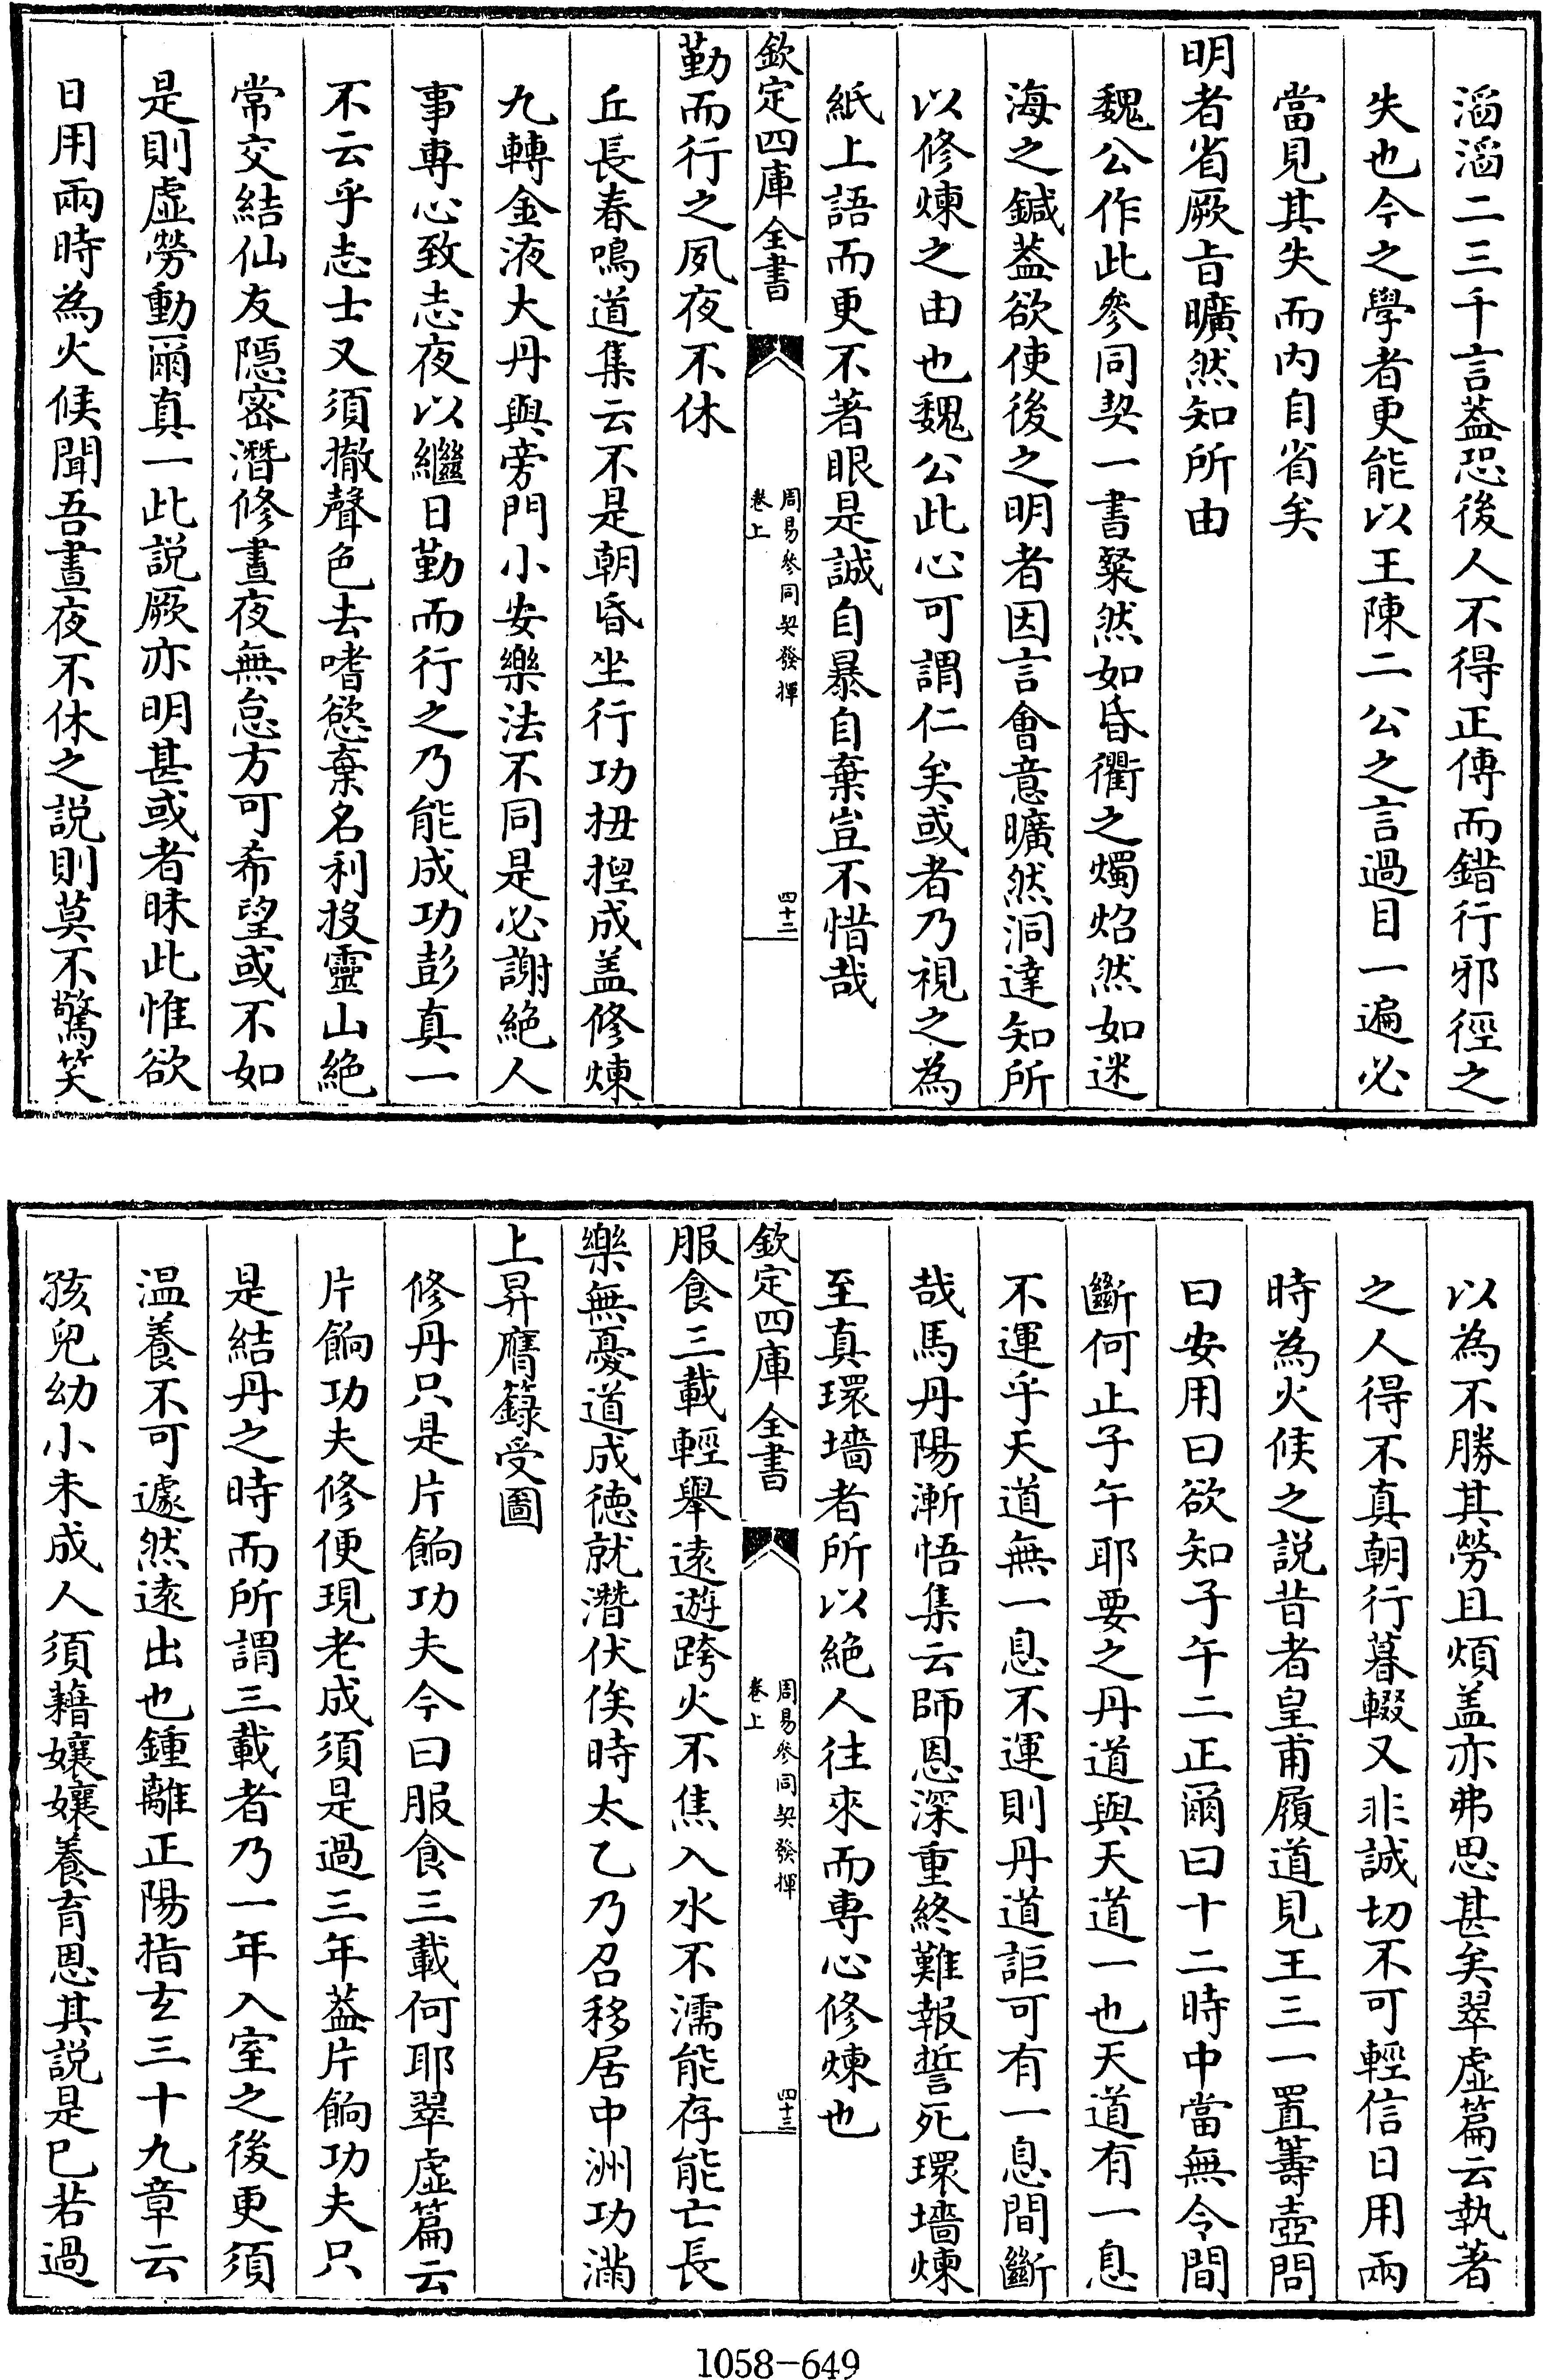 滔滔二三千言葢恐後人不得正傳而錯行邪徑之
失也今之學者更能以王陳二公之言過目一遍必
當見其失而内自省矣
明者省厥㫖曠然知所由
魏公作此參同契一書粲然如昏衢之燭炤然如迷
海之鍼葢欲使後之明者因言會意曠然洞達知所
以修煉之由也魏公此心可謂仁矣或者乃視之為
紙上語而更不著眼是誠自暴自棄豈不惜哉
欽定四庫全書
周易參同契發揮
卷上
四十二
勤而行之夙夜不休
丘長春鳴道集云不是朝昏坐行功扭捏成盖修煉
九轉金液大丹與旁門小安樂法不同是必謝絶人
事專心致志夜以繼日勤而行之乃能成功彭真一
不云乎志士又須撤聲色去嗜慾棄名利投靈山絶
常交結仙友隱密潛修晝夜無怠方可希望或不如
是則虚勞動爾真一此説厥亦明甚或者昧此惟欲
日用兩時為火候聞吾晝夜不休之説則莫不驚笑
以為不勝其勞且煩盖亦弗思甚矣翠虚篇云執著
之人得不真朝行暮輟又非誠切不可輕信日用兩
時為火候之説昔者皇甫履道見王三一置籌壺問
曰安用曰欲知子午二正爾曰十二時中當無令間
斷何止子午耶要之丹道與天道一也天道有一息
不運乎天道無一息不運則丹道詎可有一息間斷
哉馬丹陽漸悟集云師恩深重終難報誓死環墻煉
至真環墻者所以絶人往來而專心修煉也
欽定四庫全書
周易參同契發揮
卷上
四十三
服食三載輕舉逺遊跨火不焦入水不濡能存能亡長
樂無憂道成徳就潛伏俟時太乙乃召移居中洲功滿
上昇膺籙受圖
修丹只是片餉功夫今曰服食三載何耶翠虚篇云
片餉功夫修便現老成須是過三年葢片餉功夫只
是結丹之時而所謂三載者乃一年入室之後更須
温養不可遽然逺出也鍾離正陽指𤣥三十九章云
孩兒幼小未成人須藉孃孃養育恩其説是已若過
1058-649